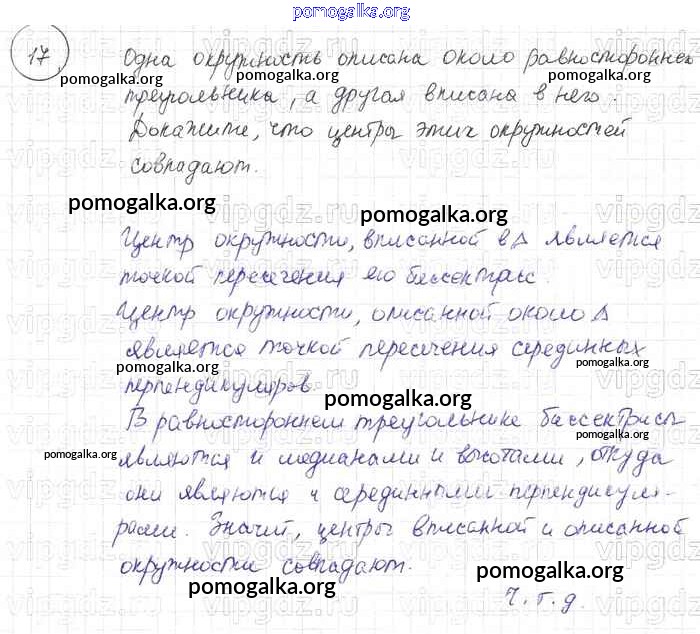 pomogalka.org
17 Одна окружность описана около равностороннего
pomogalka.org pomogalka.org pomogalka.org
треугольника, а другая вписана в него.
Докажите, что центры этих окружностей
совпадают.
pomogalka.org
pomogalka.org
Центр окружности, вписанной в Δ является
точкой пересечения его биссектрис.
Центр окружности, описанной около Δ
является точкой пересечения серединных
pomogalka.org pomogalka.org
перпендикуляров.
pomogalka.org
В равностороннем треугольнике биссектрисы
pomogalka.org
pomogalka.org
являются и медианами и высотами, откуда
они являются и серединными перпендикуля-
рами. Значит, центры вписанной и описанной
окружности совпадают.
pomogalka.org
pomogalka.org
Ч.т.д.